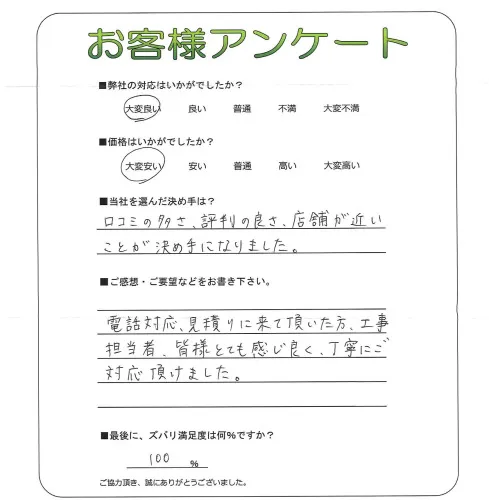 お客様アンケート
■弊社の対応はいかがでしたか？
大変良い 良い 普通 不満 大変不満
■価格はいかがでしたか？
大変安い 安い 普通 高い 大変高い
■当社を選んだ決め手は？
口コミの多さ、評判の良さ、店舗が近い
ことが決め手になりました。
■ご感想・ご要望などをお書き下さい。
電話対応、見積りに来て頂いた方、工事
担当者、皆様とても感じ良く、丁寧にご
対応頂けました。
■最後に、ズバリ満足度は何%ですか？
100 %
ご協力頂き、誠にありがとうございました。